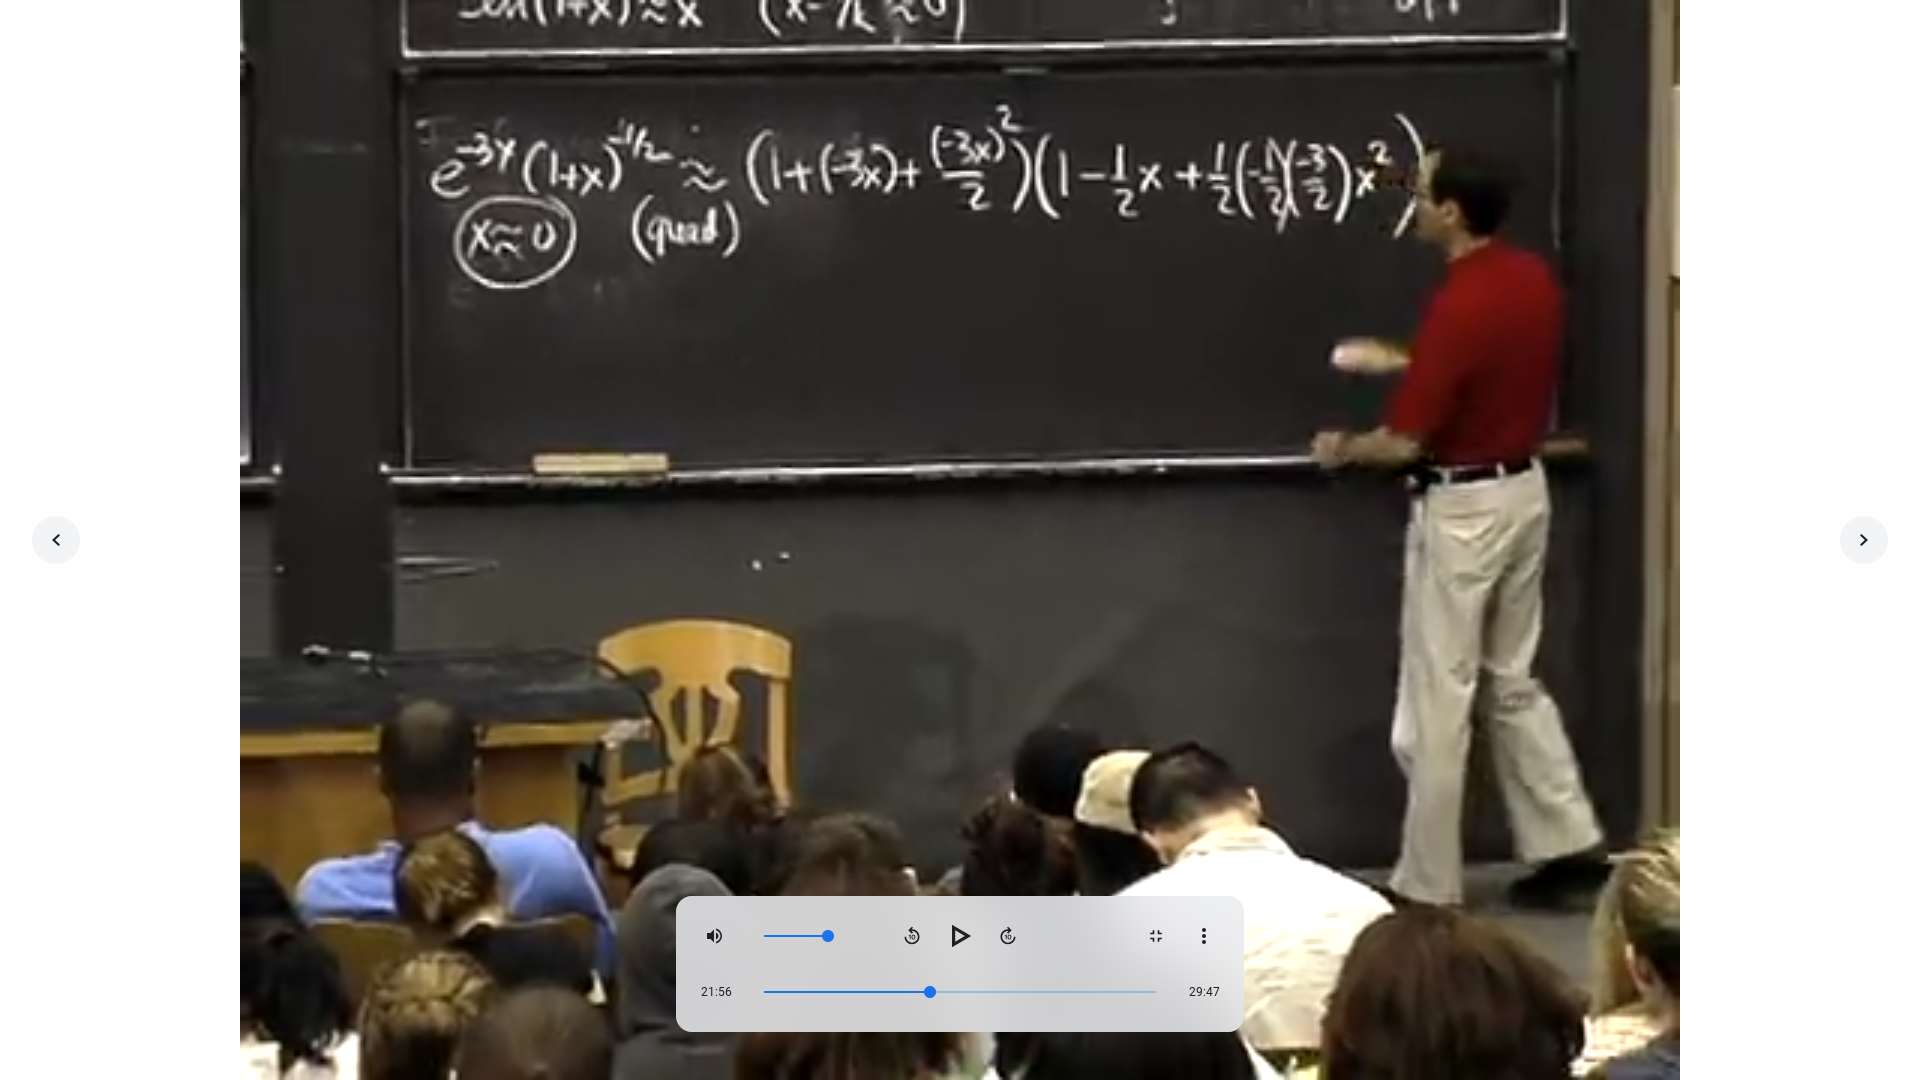 (x-π/2≈0)
e^{-3x}(1+x)^{-1/2} ≈ (1+(-3x)+\frac{(-3x)^2}{2})(1-\frac{1}{2}x+\frac{1}{2}(-\frac{1}{2})(\frac{-3}{2})x^2)
x≈0 (quad)
21:56 29:47